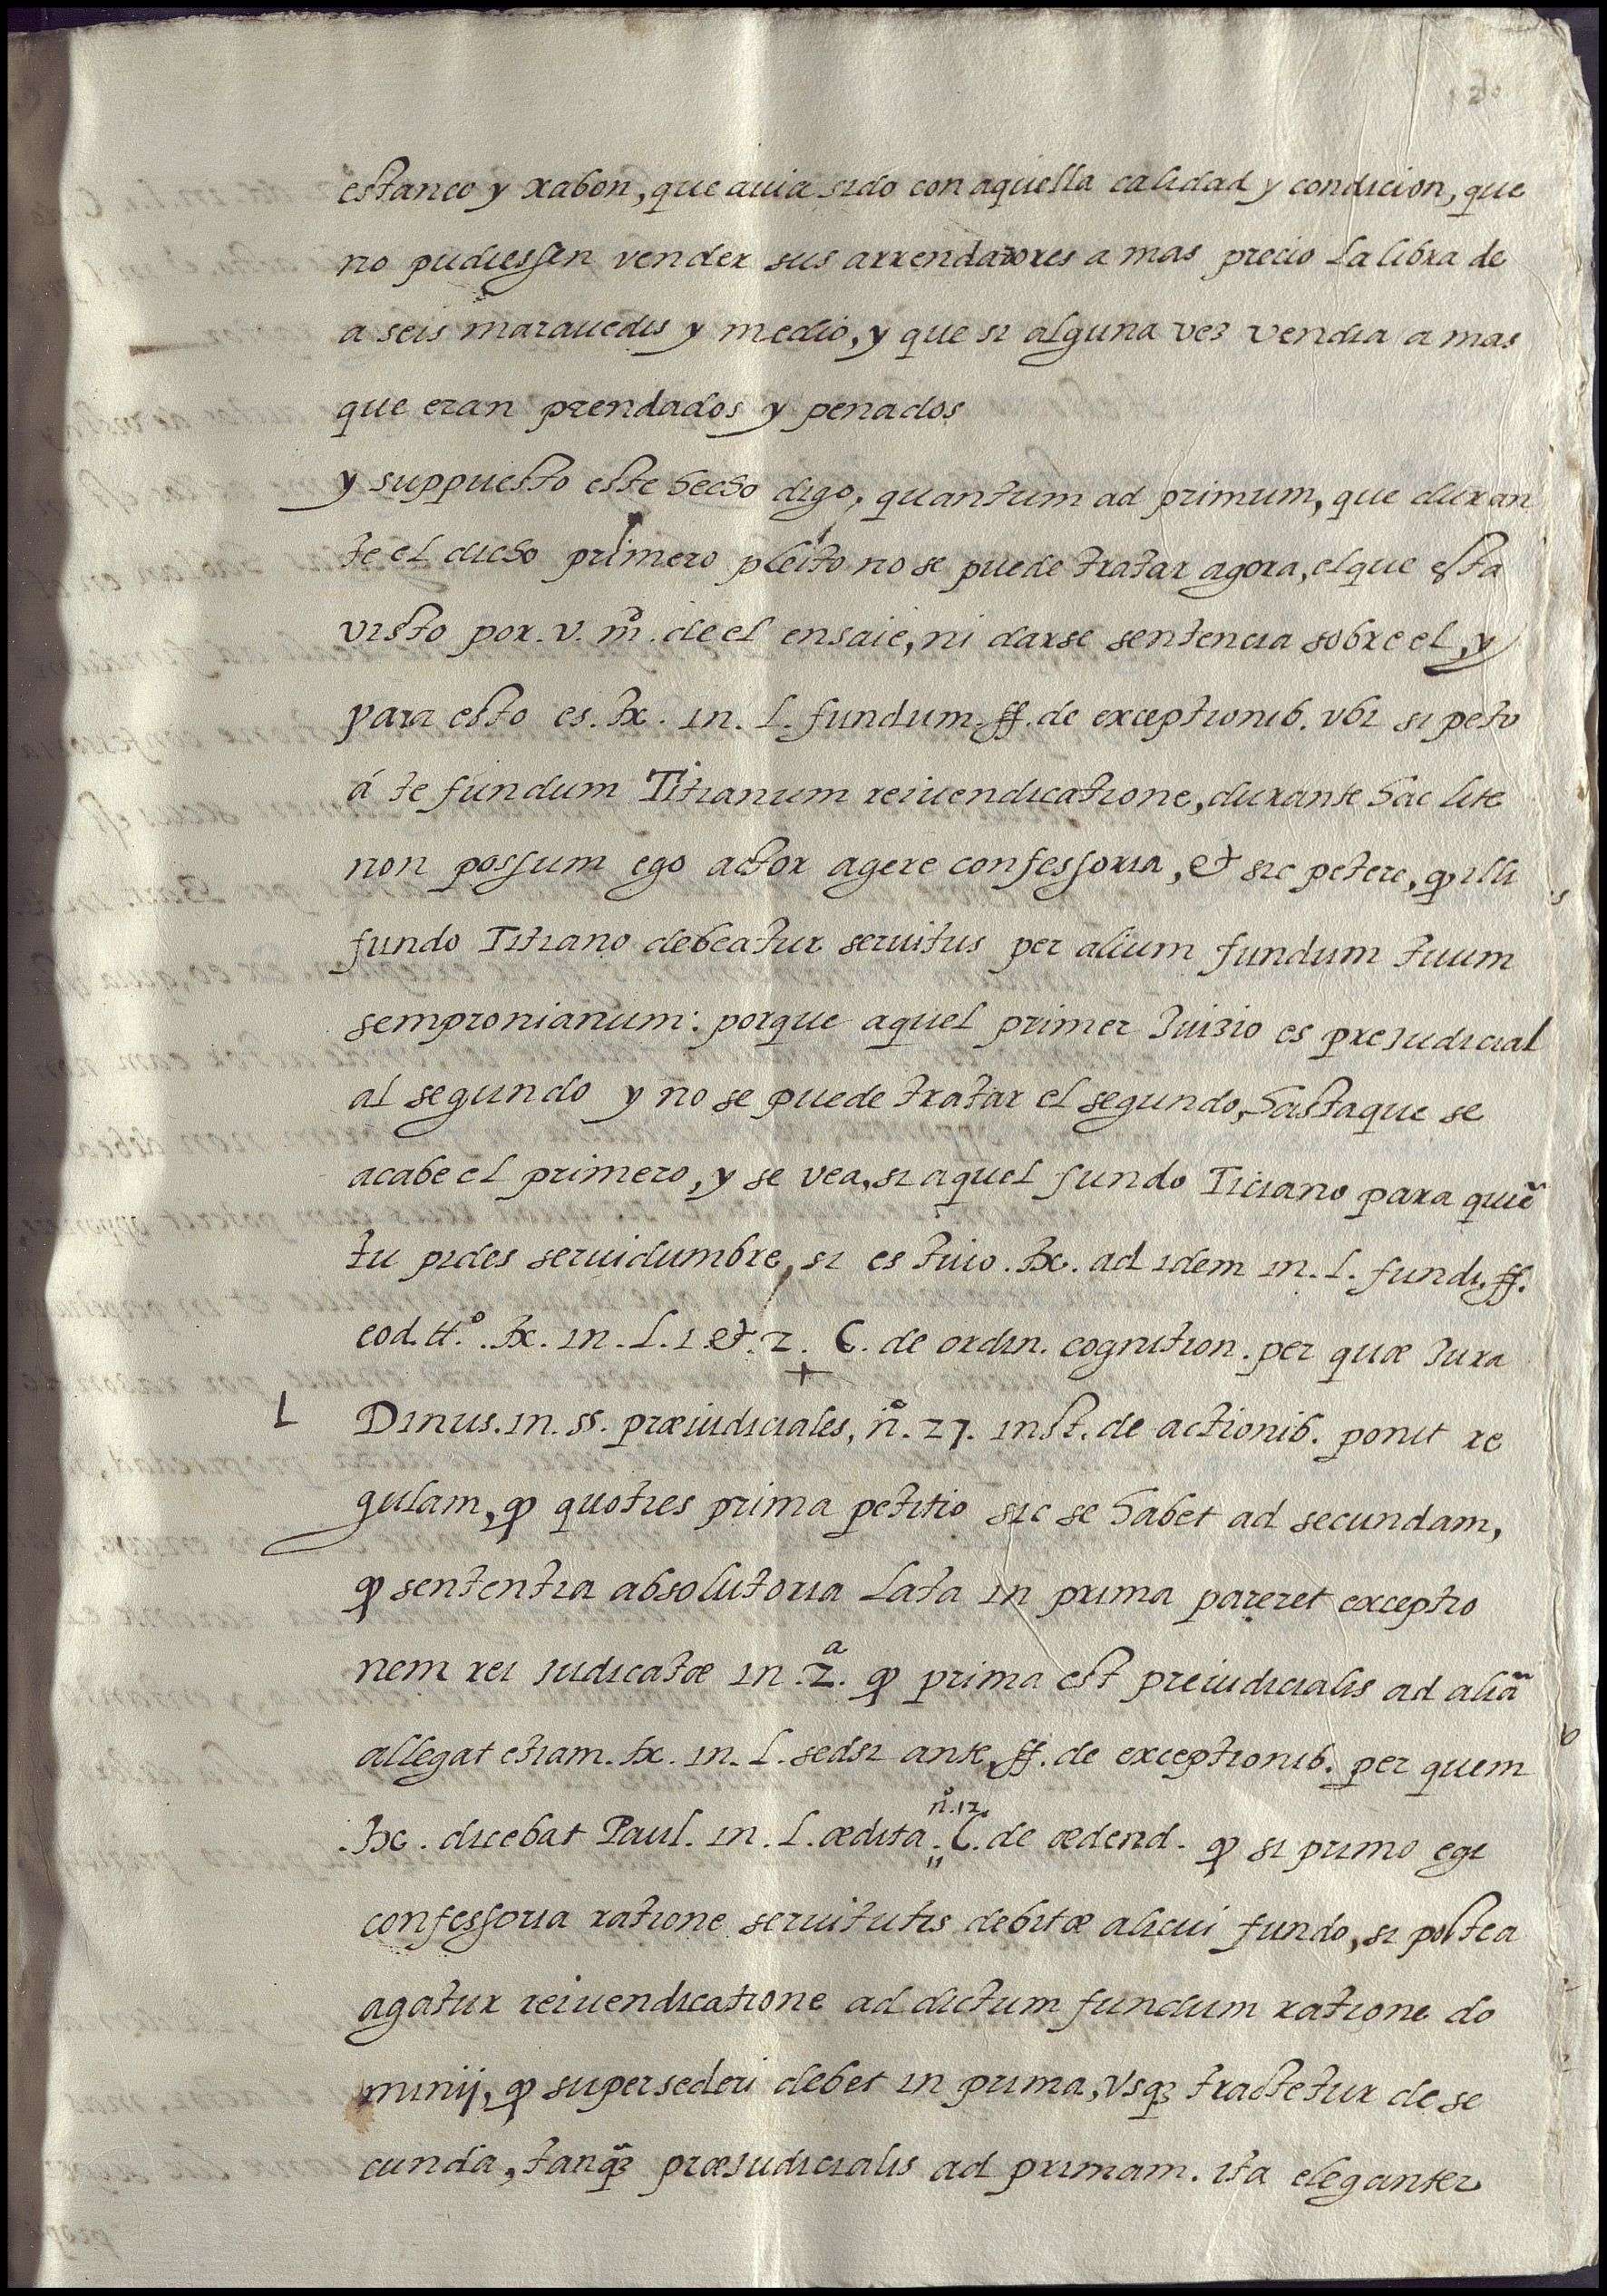 estanco y xabon, que auia sido con aquella calidad y condicion, que
no pudiessen vender sus arrendadores a mas precio la libra de
a seis marauedis y medio, y que si alguna vez vendia a mas
que eran prendados y penados
y suppuesto este hecho digo, quantum ad primum, que duran
te el dicho primero pleito no se puede tratar agora, el que esta
visto por. v. m. de el ensaie, ni darse sentencia sobre el, y
para esto es. tx. in. l. fundum. ff. de exceptionib. vbi si peto
á te fundum Titianum reiuendicatione, durante hac lite
non possum ego actor agere confessoria, et sic petere, qp illi
fundo Titiano debeatur seruitus per alium fundum tuum
sempronianum: porque aquel primer Juizio es prejudicial
al segundo y no se puede tratar el segundo, hasta que se
acabe el primero, y se vea, si aquel fundo Ticiano para quiẽ
tu pides seruidumbre, si es tuio. tx. ad idem in. l. fundi. ff.
eod. tt.º tx. in. l. 1. et. 2. C. de ordin. cognition. per quæ Jura
L Dinus. in. §§. præiudiciales, nº. 27. inst. de actionib. ponit re
gulam, qp quoties prima petitio sic se habet ad secundam,
qp sententia absolutoria lata in prima pareret exceptio
nem rei iudicatæ in. 2.ª qp prima est preiudicialis ad aliã
allegat etiam. tx. in. l. sed si ante, ff. de exceptionib. per quem
tx. dicebat Paul. in. l. ædita. nº. 12. C. de ædend. qp si primo egi
confessoria ratione seruitutis debitæ alicui fundo, si postea
agatur reiuendicatione ad dictum fundum ratione do
minij, qp supersederi debet in prima, vsq3 tractetur de se
cunda, tanq̃3 præjudicialis ad primam. ita eleganter